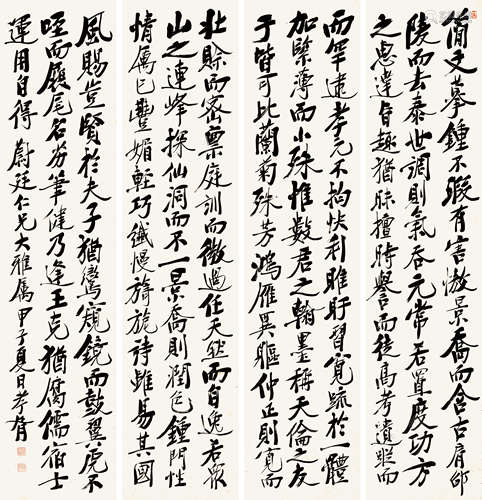 任閒又摹鍾不暇有害做景喬而含古肩邵
陵而去泰世調則氣吞元常若置度功方
之惠達自趣猶昧擅時譽而徒高考遺蹤而
而罕逮孝元不拘快利睢盱習寬疏於一體
加緊薄而小殊惟數君之翰墨稱天倫之友
于皆可比蘭菊殊芳鴻雁異軀仲正則寬而
壯賒而密票庭訓而微過任天然而自逸若眾
山之連峰探仙洞而不一景喬則潤色鍾門性
情厲已豐媚輕巧纖慢旖旎詩雖易其國
風賜豈賢於夫子猶鸞窺鏡而鼓翼虎不
咥而履尾名劣筆健乃逢王克猶腐儒宿士
運用自得 蔚廷仁兄大雅屬甲子夏日